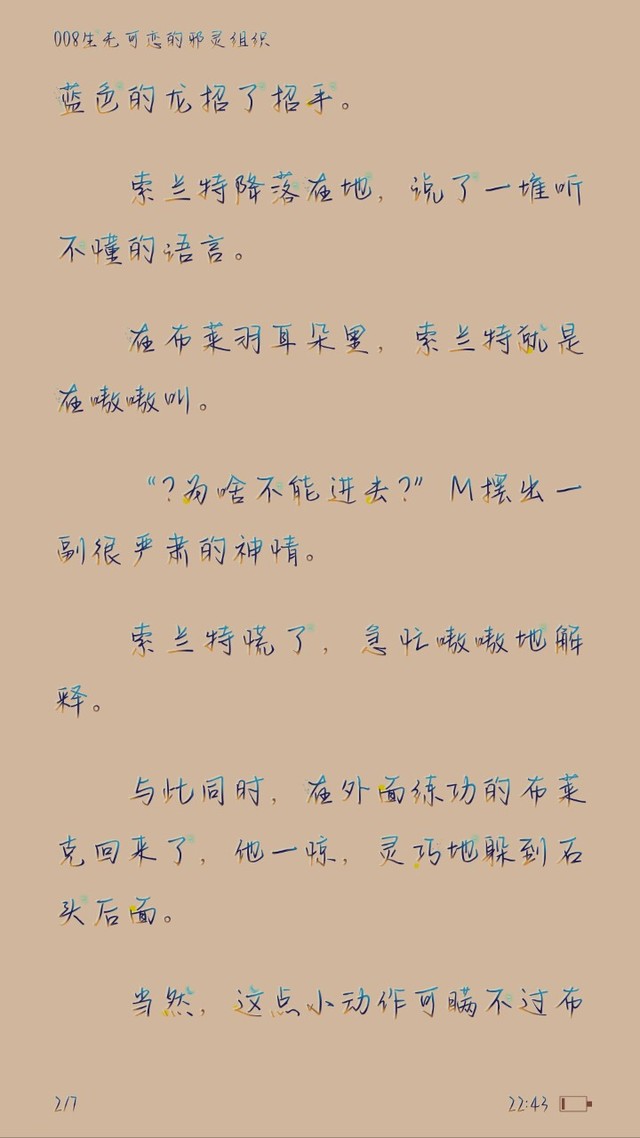 008生无可恋的邪灵组织
蓝色的龙招了招手。
索兰特降落在地，说了一堆听
不懂的语言。
在布莱羽耳朵里，索兰特就是
在嗷嗷叫。
“?为啥不能进去?”M摆出一
副很严肃的神情。
索兰特慌了，急忙嗷嗷地解
释。
与此同时，在外面练功的布莱
克回来了，他一惊，灵巧地躲到石
头后面。
当然，这点小动作可瞒不过布
2/7
22:43